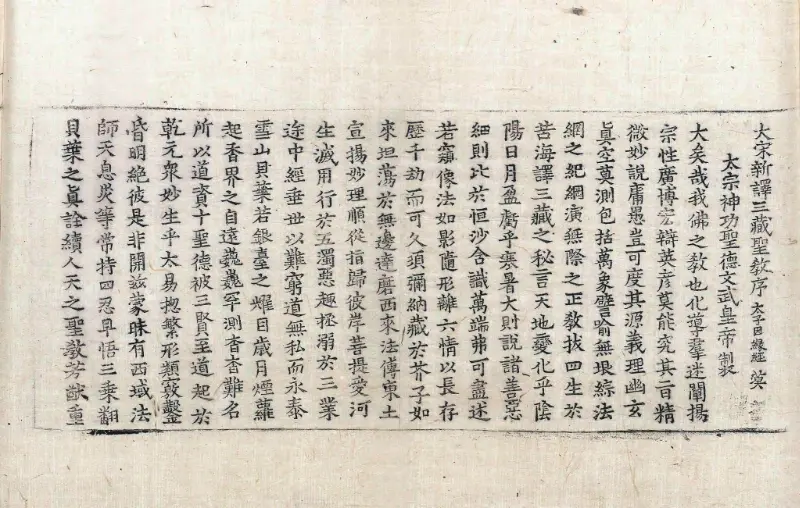 大宋新譯三藏聖教序 太子因緣經
太宗神功聖德文武皇帝 製
大矣哉我佛之教也化導羣迷闡揚
宗性廣博宏辯英彥莫能究其旨精
微妙說庸愚豈可度其源義理幽玄
眞空莫測包括萬象譬喻無垠綜法
網之紀綱演無際之正教拔四生於
苦海譯三藏之秘言天地變化乎陰
陽日月盈虧乎寒暑大則說諸善惡
細則比於恒沙含識萬端弗可盡述
若窺像法如影隨形離六情以長存
歷千劫而可久須彌納藏於芥子如
來坦蕩於無邊達磨西來法傳東土
宣揚妙理順從指歸彼岸菩提愛河
生滅用行於五濁惡趣拯溺於三業
途中經垂世以難窮道無私而永泰
雪山貝葉若銀臺之耀目歲月煙蘿
起香界之自遠巍巍罕測杳杳難名
所以道資十聖德被三賢至道起於
乾元衆妙生乎太易揔繁形類竅鑿
昏明絶彼是非開兹蒙昧有西域法
師天息災等常持四忍早悟三乘翻
貝葉之眞詮續人天之聖教芳猷重